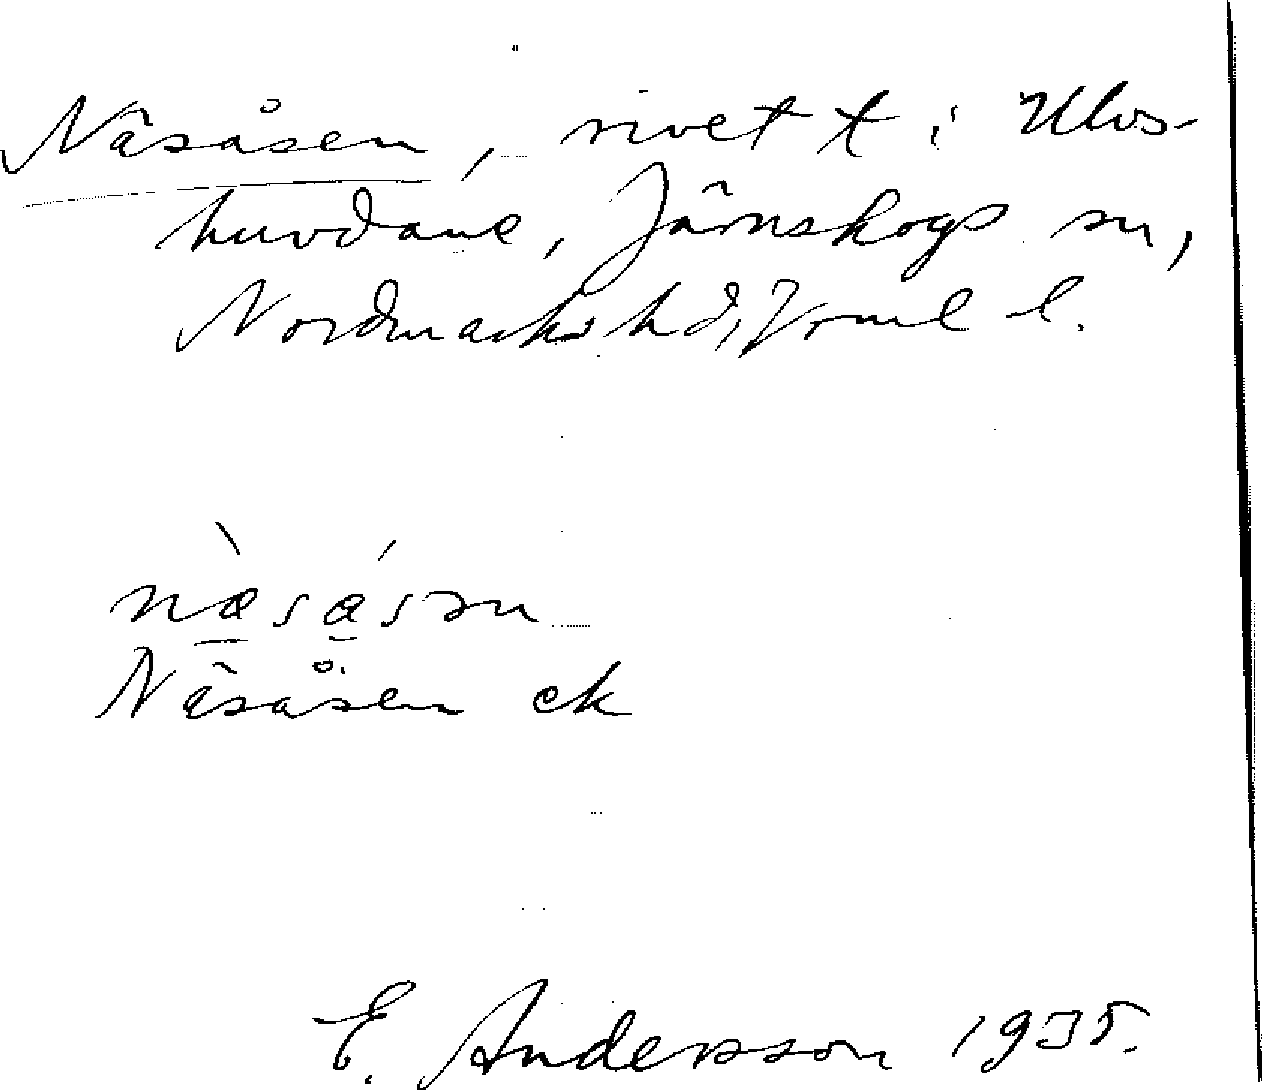 Näsåsen, rivet t i Ulvs-
huvdane, Järnskogs sn,
Nordmarks hd, Vrml l.
næ̀sǽsən
Näsåsen ek
E. Andersson 1935.